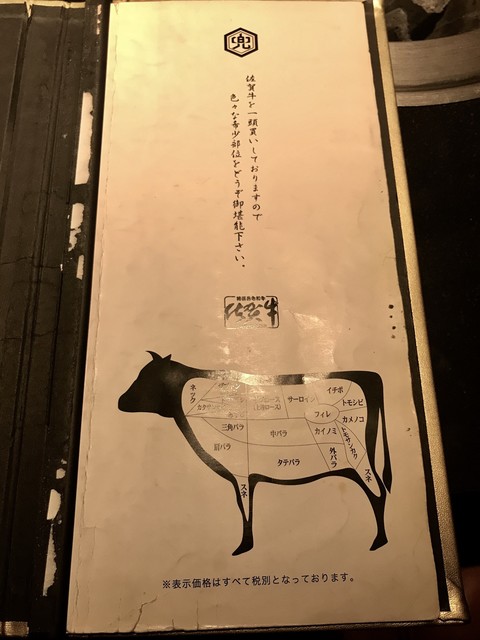 兜
佐賀牛を一頭買いしておりますので
色々な希少部位をどうぞ御堪能下さい。
佐賀牛
ネック
サーロイン
イチボ
トモシビ
フィレ
カメノコ
三角バラ
中バラ
カイノミ
トモサンカク
肩バラ
タテバラ
外バラ
スネ
スネ
※表示価格はすべて税別となっております。